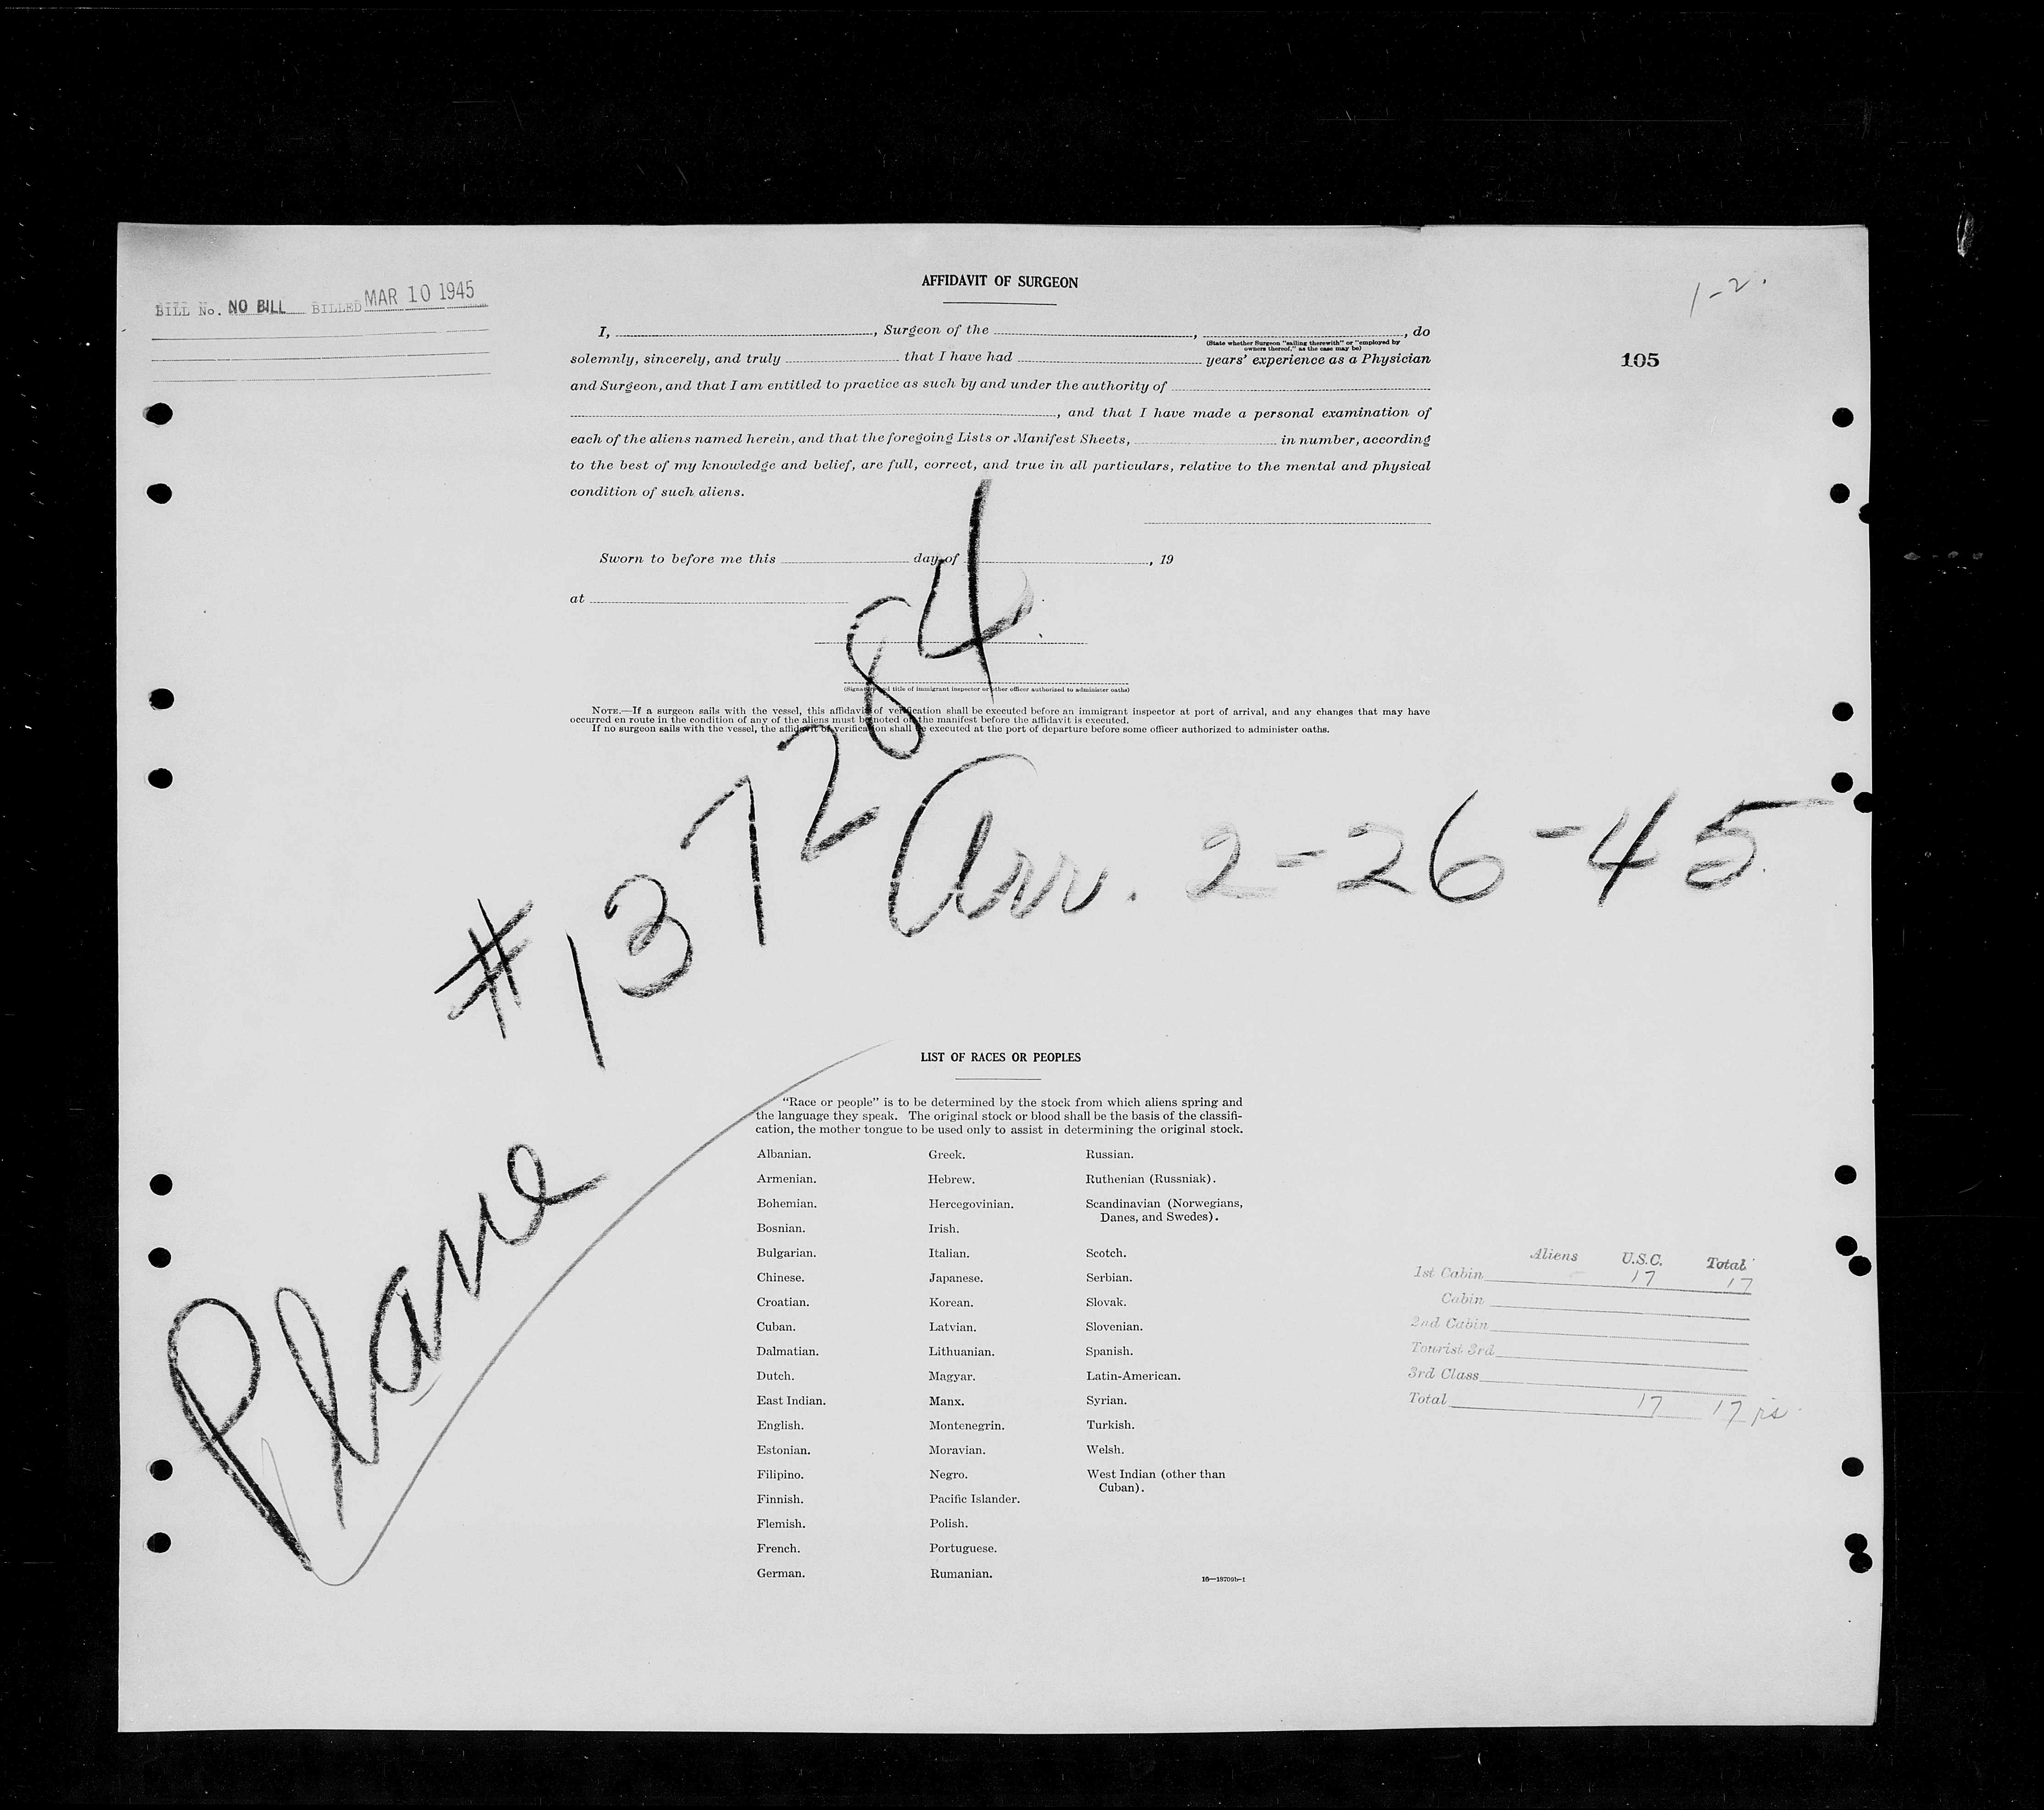 AFFIDAVIT OF SURGEON
1-2.
BILL No. NO BILL BILLED MAR 10 1945
I, , Surgeon of the , , do
(State whether Surgeon "sailing therewith" or "employed by
owners thereof," as the case may be)
solemnly, sincerely, and truly that I have had years' experience as a Physician
105
and Surgeon, and that I am entitled to practice as such by and under the authority of
, and that I have made a personal examination of
each of the aliens named herein, and that the foregoing Lists or Manifest Sheets, in number, according
to the best of my knowledge and belief, are full, correct, and true in all particulars, relative to the mental and physical
condition of such aliens.
Sworn to before me this day of , 19
at
(Signature and title of immigrant inspector or other officer authorized to administer oaths)
NOTE.—If a surgeon sails with the vessel, this affidavit of verification shall be executed before an immigrant inspector at port of arrival, and any changes that may have
occurred en route in the condition of any of the aliens must be noted on the manifest before the affidavit is executed.
If no surgeon sails with the vessel, the affidavit of verification shall be executed at the port of departure before some officer authorized to administer oaths.
#137284
Arr. 2-26-45
Plane
LIST OF RACES OR PEOPLES
"Race or people" is to be determined by the stock from which aliens spring and
the language they speak. The original stock or blood shall be the basis of the classifi-
cation, the mother tongue to be used only to assist in determining the original stock.
Albanian.
Armenian.
Bohemian.
Bosnian.
Bulgarian.
Chinese.
Croatian.
Cuban.
Dalmatian.
Dutch.
East Indian.
English.
Estonian.
Filipino.
Finnish.
Flemish.
French.
German.
Greek.
Hebrew.
Hercegovinian.
Irish.
Italian.
Japanese.
Korean.
Latvian.
Lithuanian.
Magyar.
Manx.
Montenegrin.
Moravian.
Negro.
Pacific Islander.
Polish.
Portuguese.
Rumanian.
Russian.
Ruthenian (Russniak).
Scandinavian (Norwegians,
Danes, and Swedes).
Scotch.
Serbian.
Slovak.
Slovenian.
Spanish.
Latin-American.
Syrian.
Turkish.
Welsh.
West Indian (other than
Cuban).
16—18709b-1
Aliens U.S.C. Total
1st Cabin - 17 17
Cabin
2nd Cabin
Tourist 3rd
3rd Class
Total 17 17